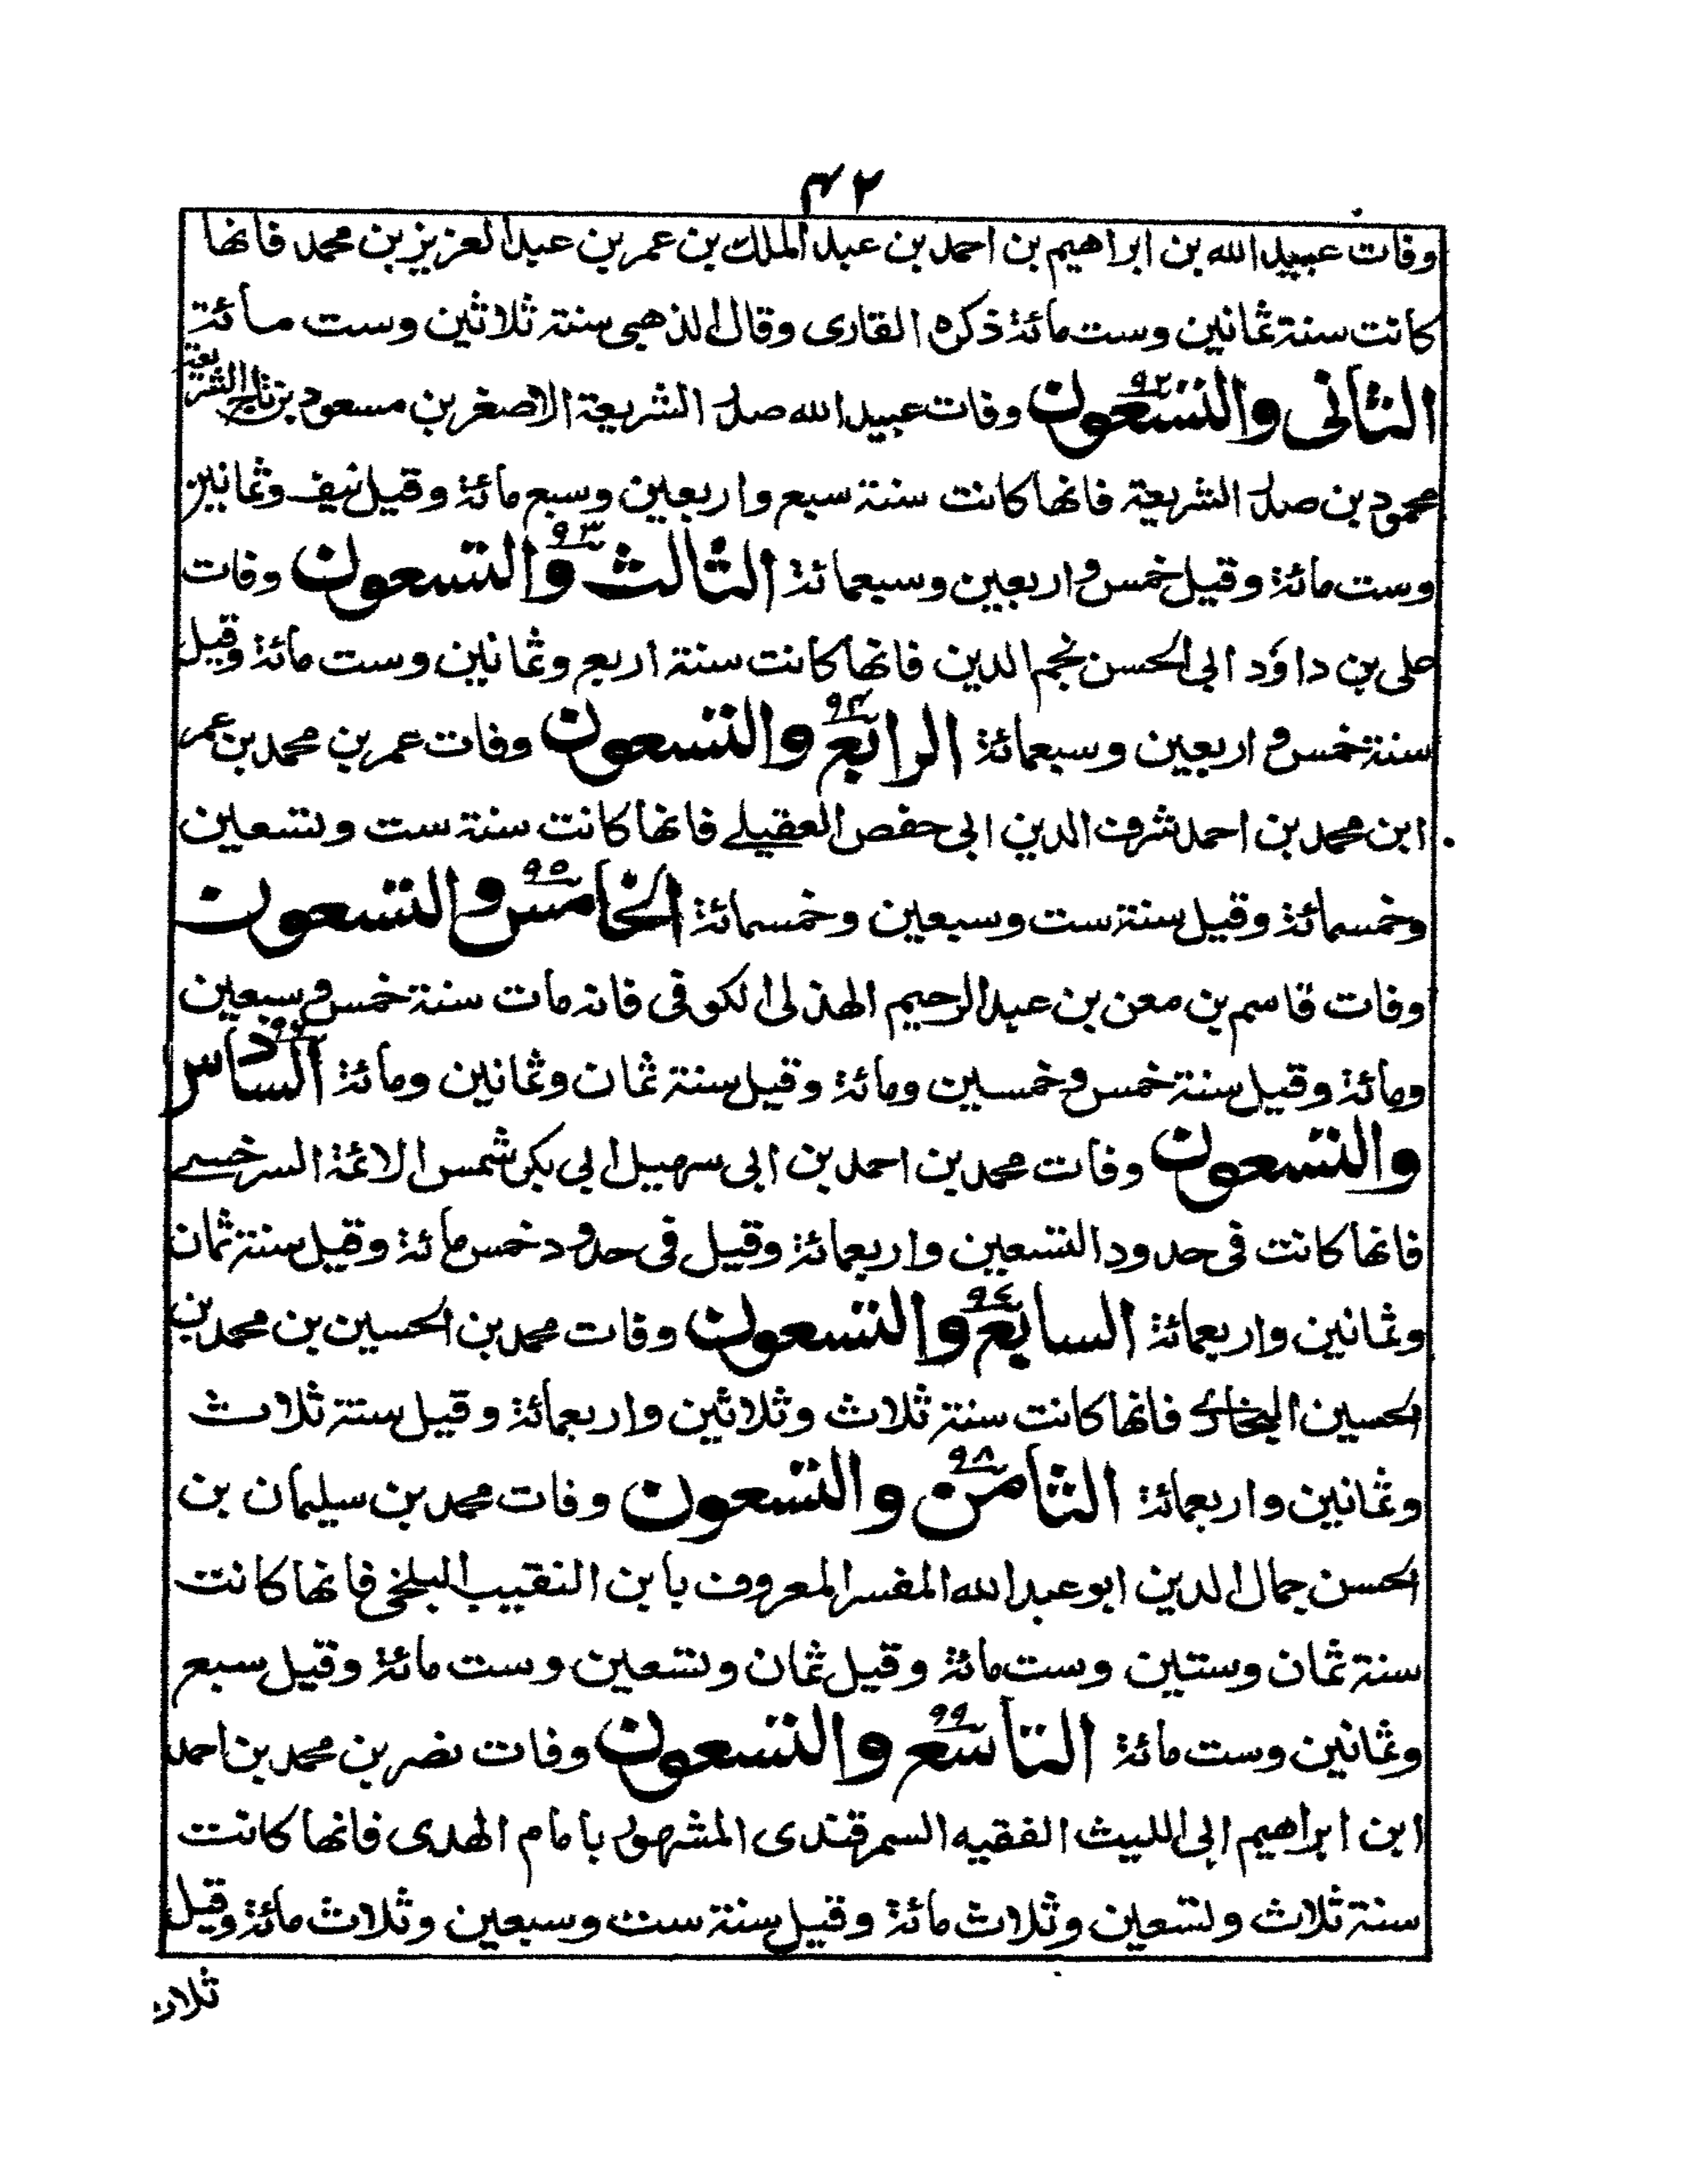 ۴۲
وفات عبيدالله بن ابراهيم بن احمد بن عبد الملك بن عمر بن عبدالعزيز بن محمد فانها
كانت سنة ثمانين وست مائة ذكره القارى وقال الذهبى سنة ثلاثين وست مائة
الثانى والتسعون ۹۲ وفات عبيدالله صدر الشريعة الاصغر بن مسعود بن تاج الشريعة
محمود بن صدر الشريعة فانها كانت سنة سبع واربعين وسبع مائة وقيل نيف وثمانين
وست مائة وقيل خمس واربعين وسبعمائة الثالث والتسعون ۹۳ وفات
على بن داؤد ابى الحسن نجم الدين فانها كانت سنة اربع وثمانين وست مائة وقيل
سنة خمس واربعين وسبعمائة الرابع والتسعون ۹۴ وفات عمر بن محمد بن عمر
ابن محمد بن احمد شرف الدين ابى حفص العقيلے فانها كانت سنة ست وتسعين
وخمسمائة وقيل سنة ست وسبعين وخمسمائة الخامس والتسعون ۹۵
وفات قاسم بن معن بن عبدالرحيم الهذلى الكوفى فانه مات سنة خمس وسبعين
ومائة وقيل سنة خمس وخمسين ومائة وقيل سنة ثمان وثمانين ومائة السادس ۹۶
والتسعون وفات محمد بن احمد بن ابى سهيل ابى بكر شمس الائمة السرخسے
فانها كانت فى حدود التسعين واربعمائة وقيل فى حدود خمس مائة وقيل سنة ثمان
وثمانين واربعمائة السابع والتسعون ۹۷ وفات محمد بن الحسين بن محمد بن
الحسين البخارى فانها كانت سنة ثلاث وثلاثين واربعمائة وقيل سنة ثلاث
وثمانين واربعمائة الثامن والتسعون ۹۸ وفات محمد بن سليمان بن
الحسن جمال الدين ابو عبد الله المفسر المعروف بابن النقيب البلخى فانها كانت
سنة ثمان وستين وست مائة وقيل ثمان وتسعين وست مائة وقيل سبع
وثمانين وست مائة التاسع والتسعون ۹۹ وفات نصر بن محمد بن احمد
ابن ابراهيم ابى الليث الفقيه السمرقندى المشهور بامام الهدى فانها كانت
سنة ثلاث وتسعين وثلاث مائة وقيل سنة ست وسبعين وثلاث مائة وقيل
ثلاث